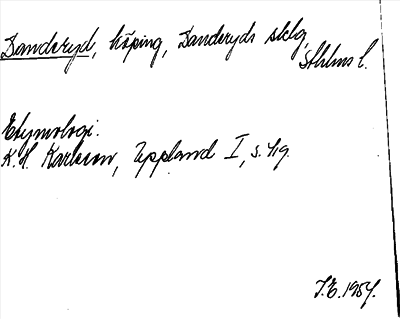 Danderyd, köping, Danderyds sklg,
Sthlms l.
Etymologi.
K.H. Karlsson, Uppland I, s. 419.
J.E. 1954.